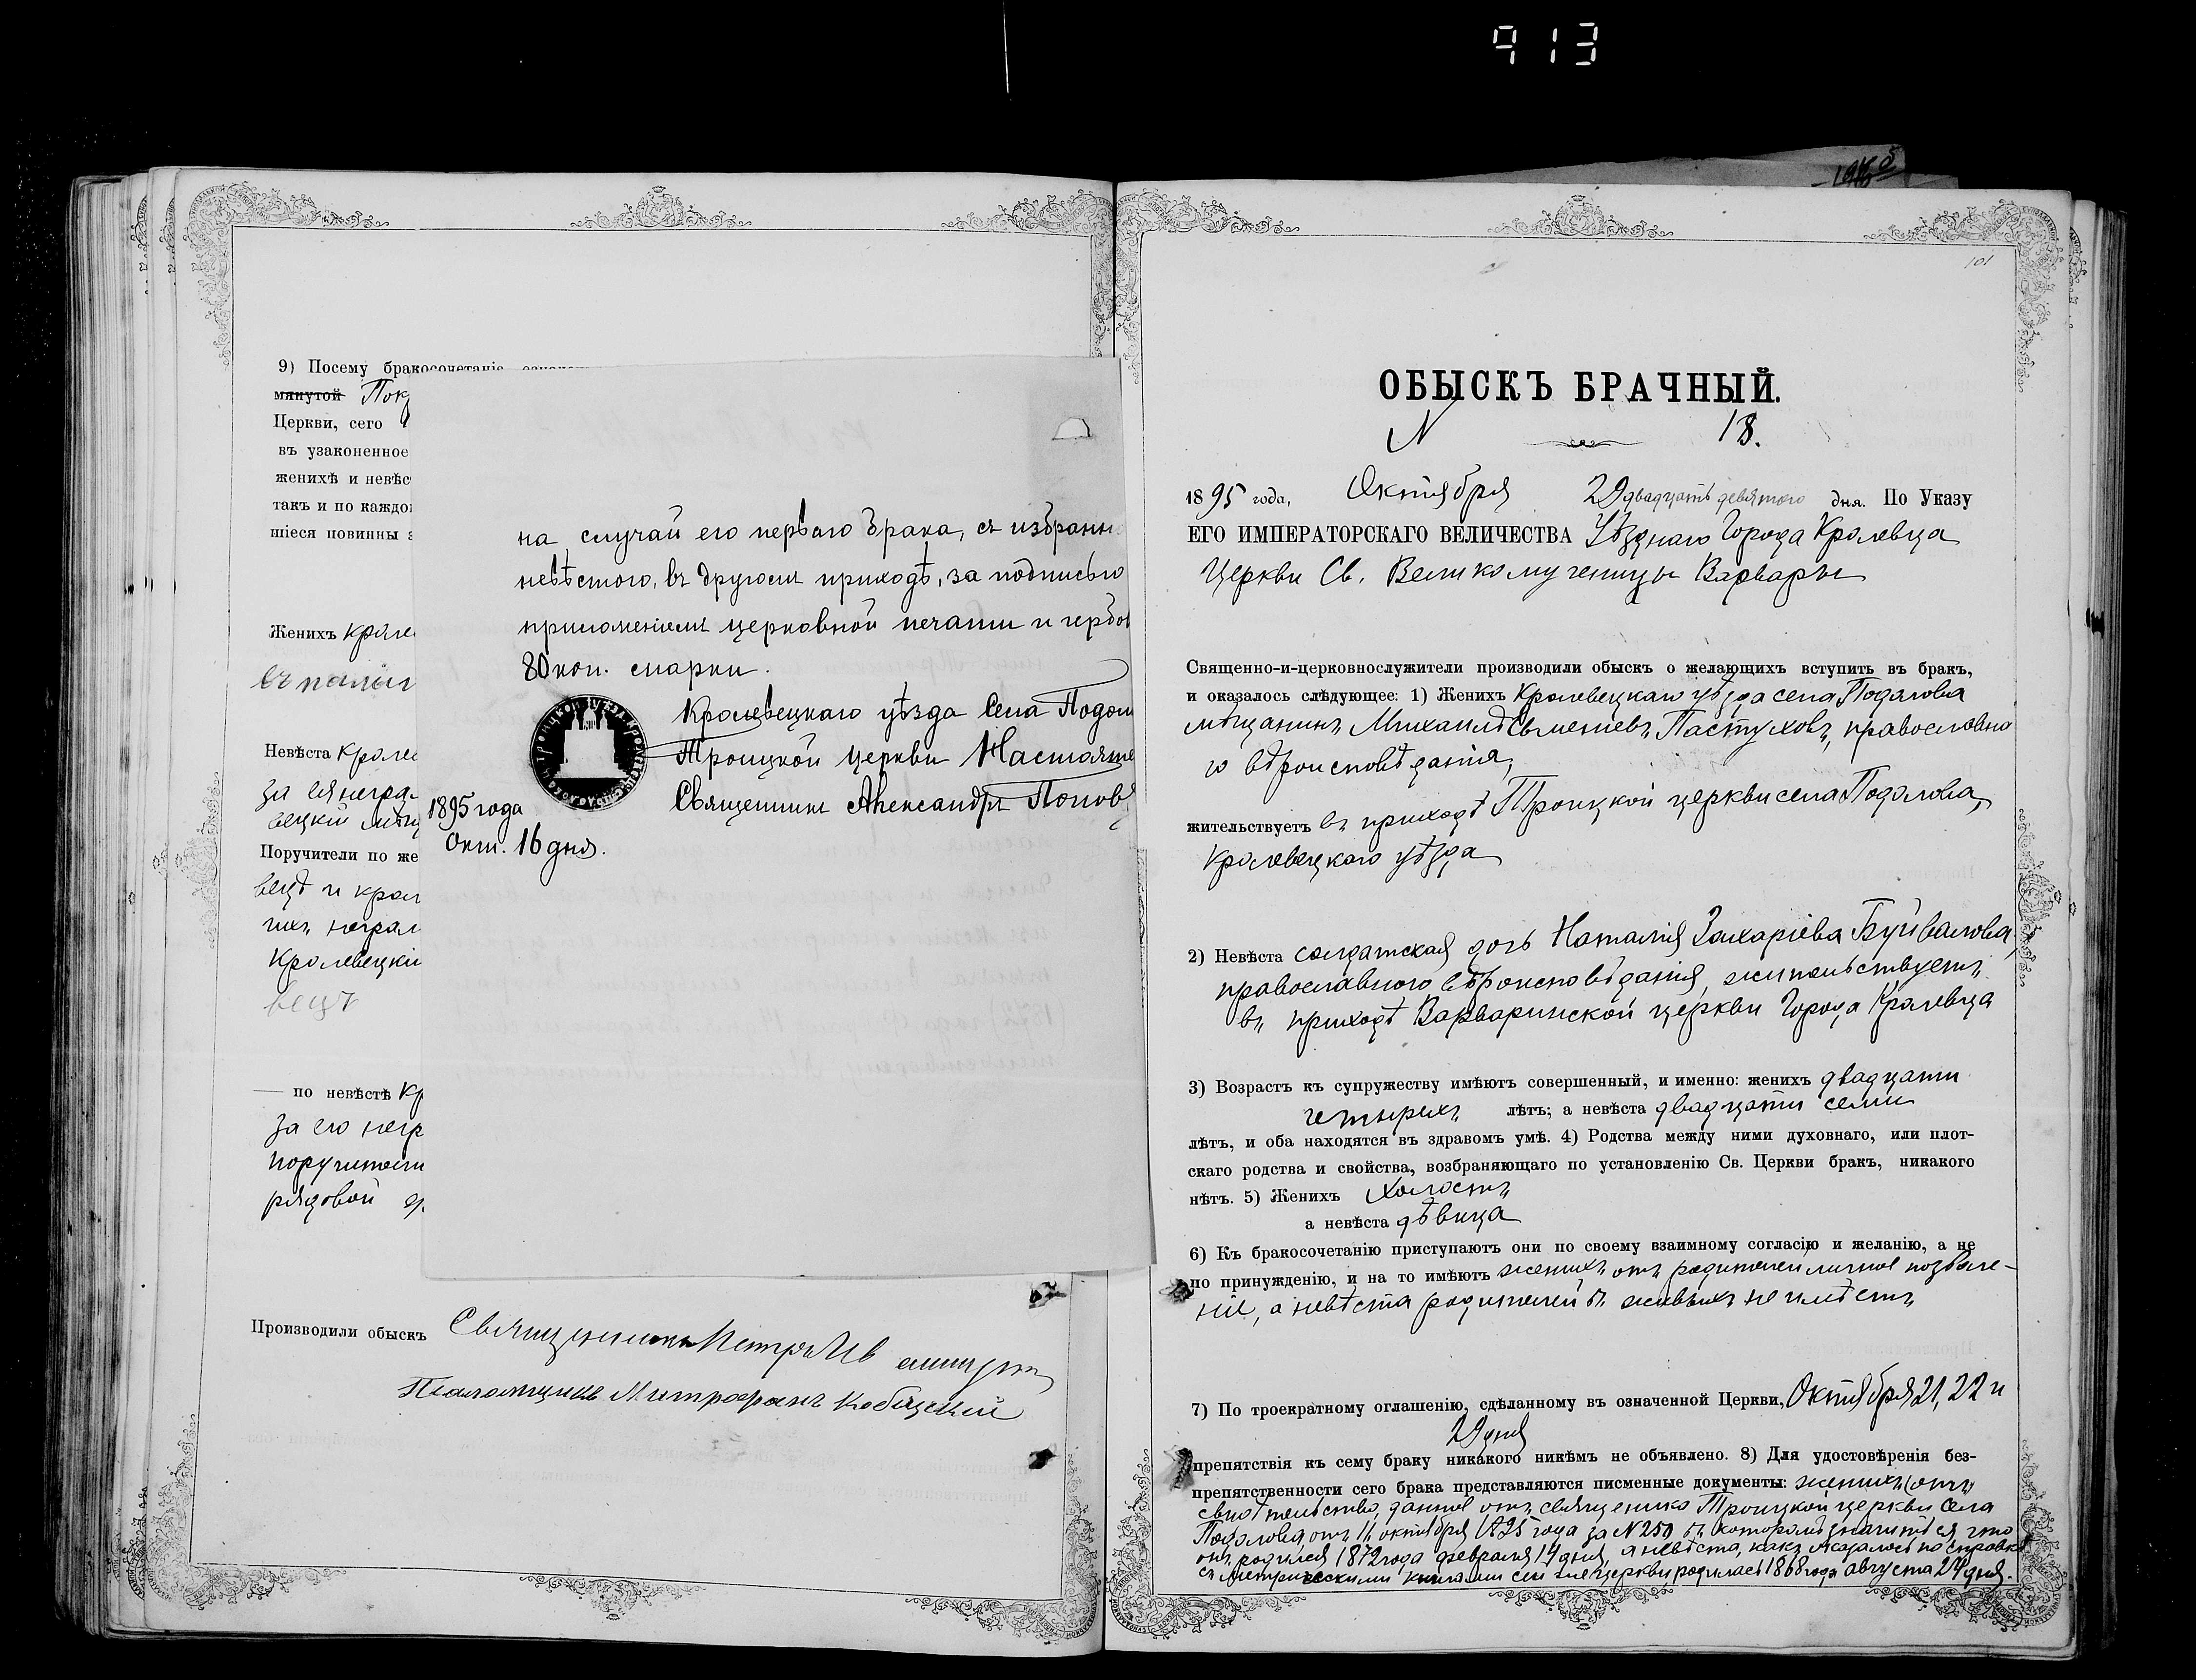 913
9) Посему бракосочетаніе
мянутой Пок
Церкви, сего
въ узаконенное
женихѣ и невѣс
такъ и по каждо
шіеся повинны
Женихъ кроле
Невѣста кроле
за ея негра
вецкій мѣщ
Поручители по же
вецъ и крол
ихъ неграм
Кролевецкі
вецъ
по невѣстѣ Кр
за его негр
поручители
рядовой
на случай его перваго брака, съ избранн
невѣстою, въ другомъ приходѣ, за подписью
приложеніемъ церковной печати и гербов
80 коп. марки.
Кролевецкаго уѣзда Села Подол
Троицкой церкви Настояте
Священникъ Александръ Поповъ
1895 года
Окт. 16 дня.
Производили обыскъ Священникъ Петръ
Псаломщикъ Митрофанъ Кобыцкій
101
ОБЫСКЪ БРАЧНЫЙ.
N 18.
1895 года, Октября 29 двадцать девятого дня. По Указу
ЕГО ИМПЕРАТОРСКАГО ВЕЛИЧЕСТВА Уѣзднаго Города Кролевца
Церкви Св. Великомученицы Варвары
Священно-и-церковнослужители производили обыскъ о желающихъ вступить въ бракъ,
и оказалось слѣдующее: 1) Женихъ Кролевецкаго уѣзда села Подолова
мѣщанинъ Михаилъ Пастуховъ, православна
го вѣроисповѣданія,
жительствуетъ въ приходѣ Троицкой церкви села Подолова,
Кролевецкаго уѣзда
2) Невѣста солдатская дочь Наталія Захаріева Буйвалова,
православного вѣроисповѣданія, жительствуетъ
въ приходѣ Варваринской церкви Города Кролевца
3) Возрастъ къ супружеству имѣютъ совершенный, и именно: женихъ двадцати
четырехъ лѣтъ; а невѣста двадцати семи
лѣтъ, и оба находятся въ здравомъ умѣ. 4) Родства между ними духовнаго, или плот-
скаго родства и свойства, возбраняющаго по установленію Св. Церкви бракъ, никакого
нѣтъ. 5) Женихъ холостъ
а невѣста дѣвица
6) Къ бракосочетанію приступаютъ они по своему взаимному согласію и желанію, а не
по принужденію, и на то имѣютъ женихъ отъ родителей личное позволе-
ніе, а невѣста родителей въ живыхъ не имѣетъ
7) По троекратному оглашенію, сдѣланному въ означенной Церкви, Октября 21, 22 и
29 дня
препятствія къ сему браку никакого никѣмъ не объявлено. 8) Для удостовѣренія без-
препятственности сего брака представляются писменные документы: женихъ
свидѣтельство, данное отъ священника Троицкой церкви Села
Подолова, отъ октября 1895 года за N 250 въ которомъ значится что
онъ родился 1872 года февраля 14 дня, а невѣста, какъ оказалось по справкѣ
съ метрическими книгами сей же церкви родилась 1868 года августа 24 дня.